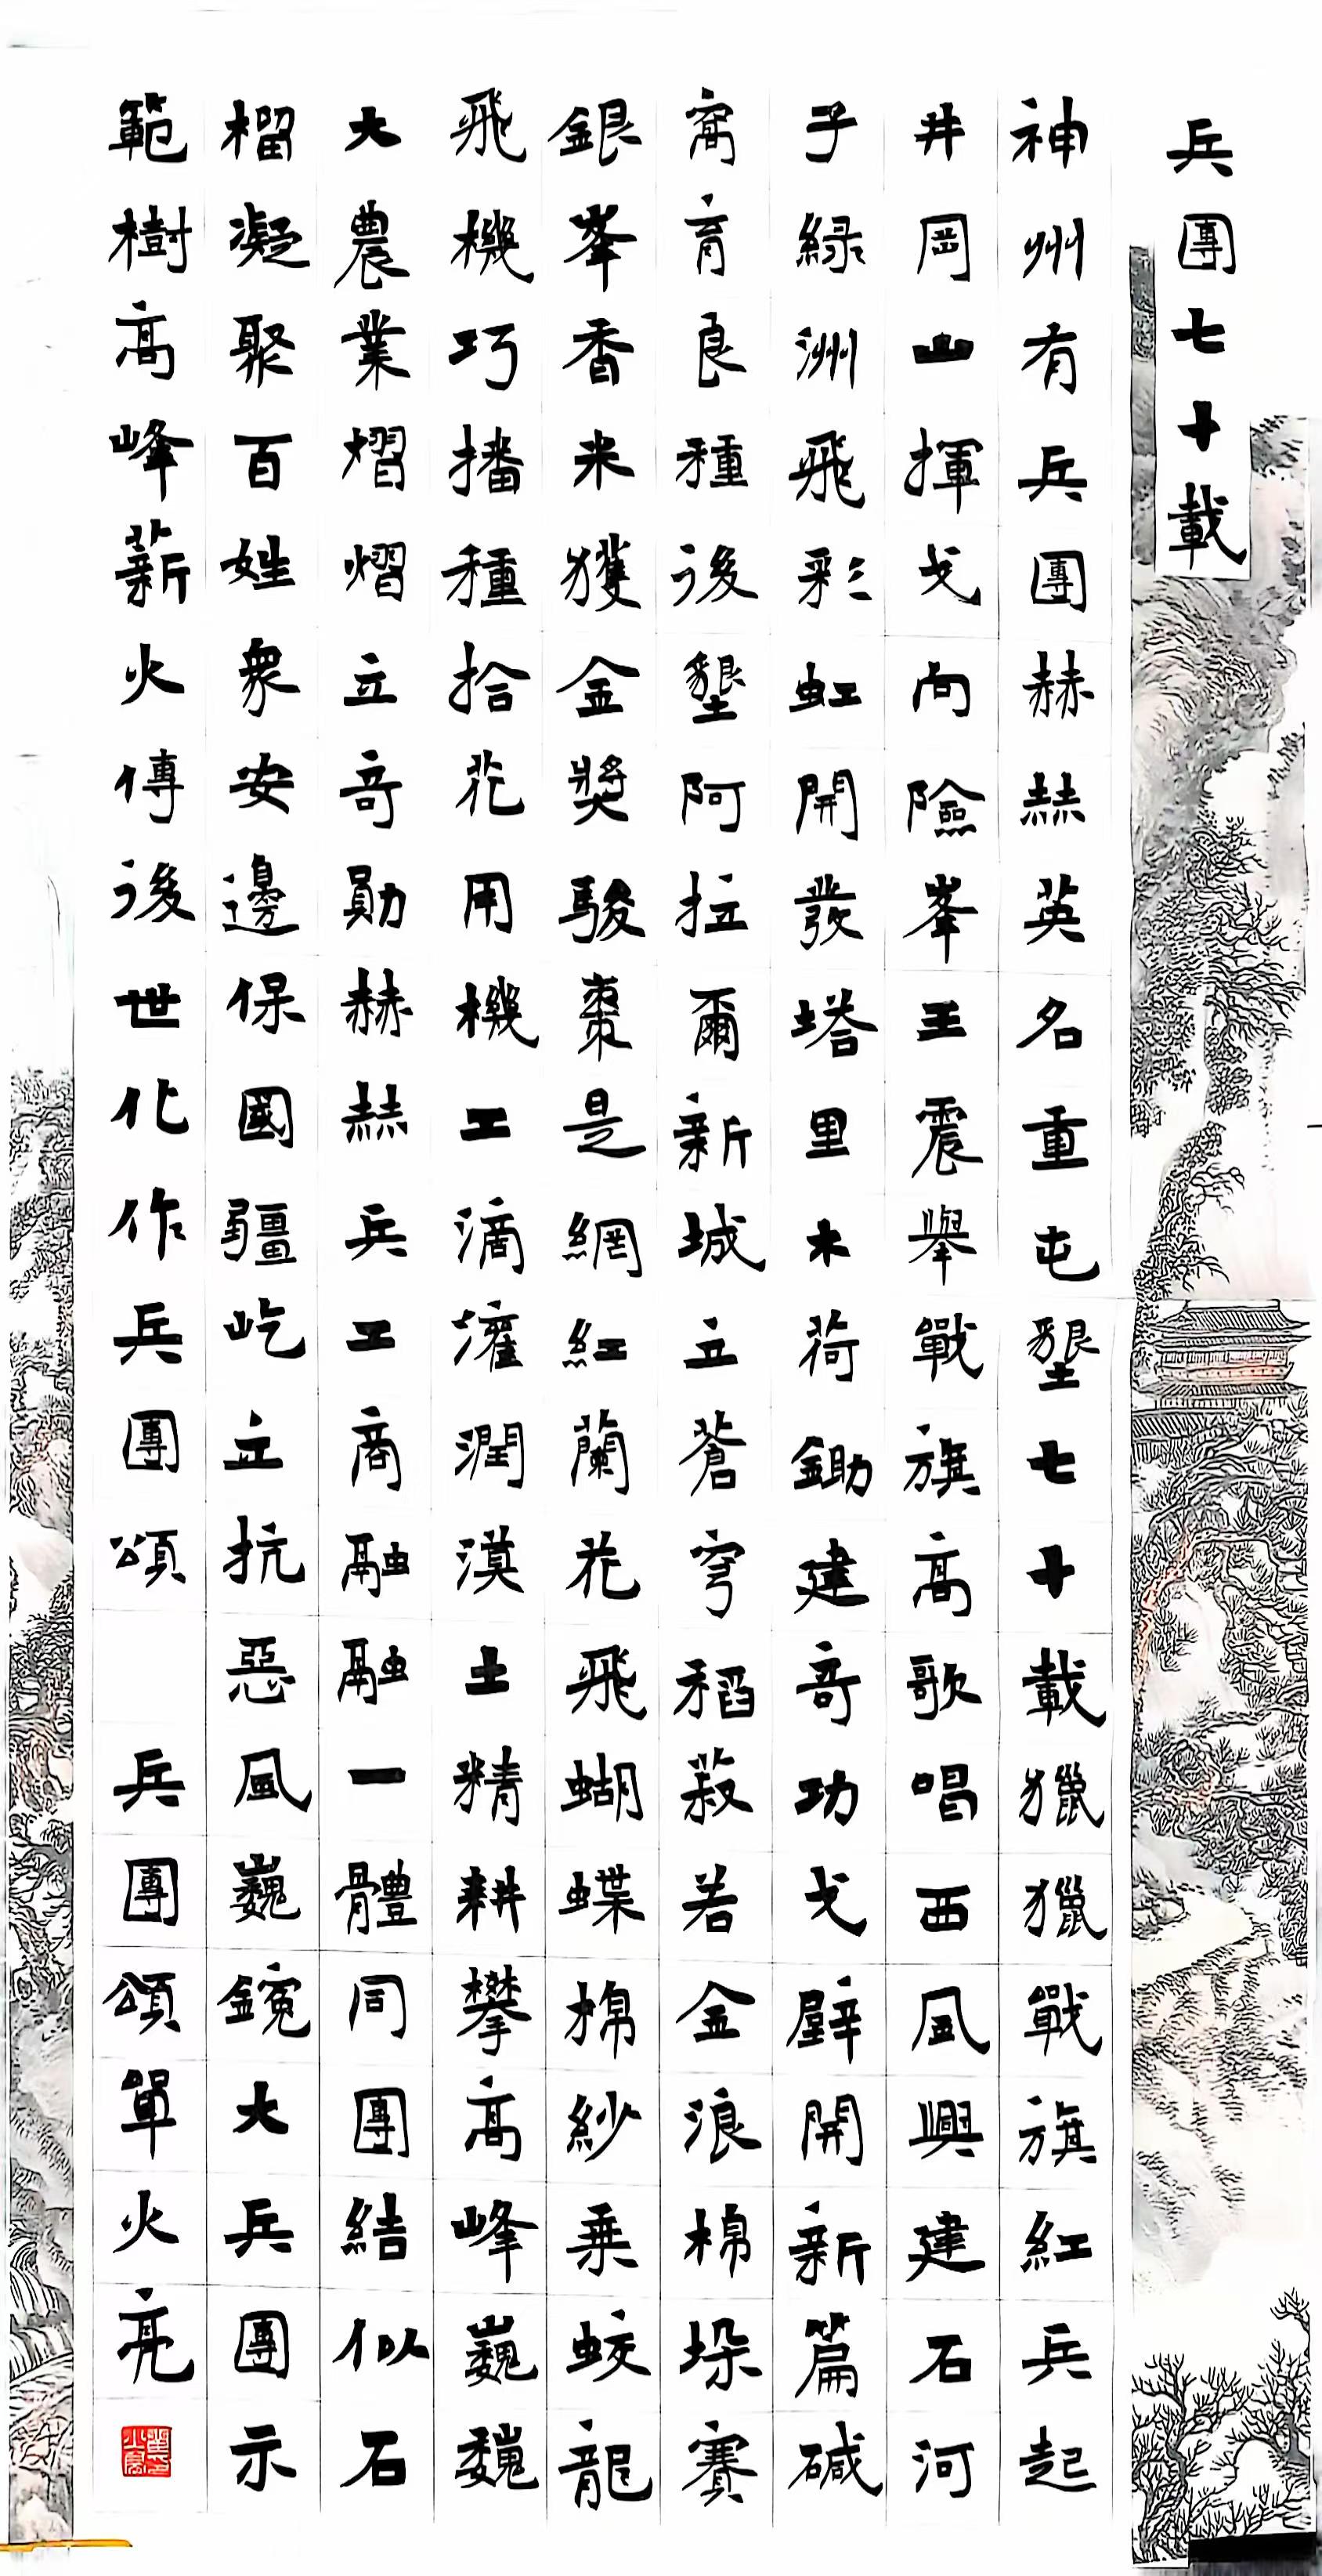 兵團七十載
神州有兵團赫赫英名重屯墾七十載獵獵戰旗紅兵起
井岡山揮戈向險峯王震舉戰旗高歌唱西風興建石河
子緑洲飛彩虹開發塔里木荷鋤建奇功戈壁開新篇碱
窩育良種後墾阿拉爾新城立蒼穹稻菽若金浪棉垛賽
銀峯香米獲金獎駿棗是網紅蘭花飛蝴蝶棉紗乗蛟龍
飛機巧播種拾花用機工滴灌潤漠土精耕攀高峰巍巍
大農業熠熠立奇勛赫赫兵工商融融一體同團結似石
榴凝聚百姓衆安邊保國疆屹立抗惡風巍大兵團示
範樹高峰薪火傳後世化作兵團頌 兵團頌單火亮